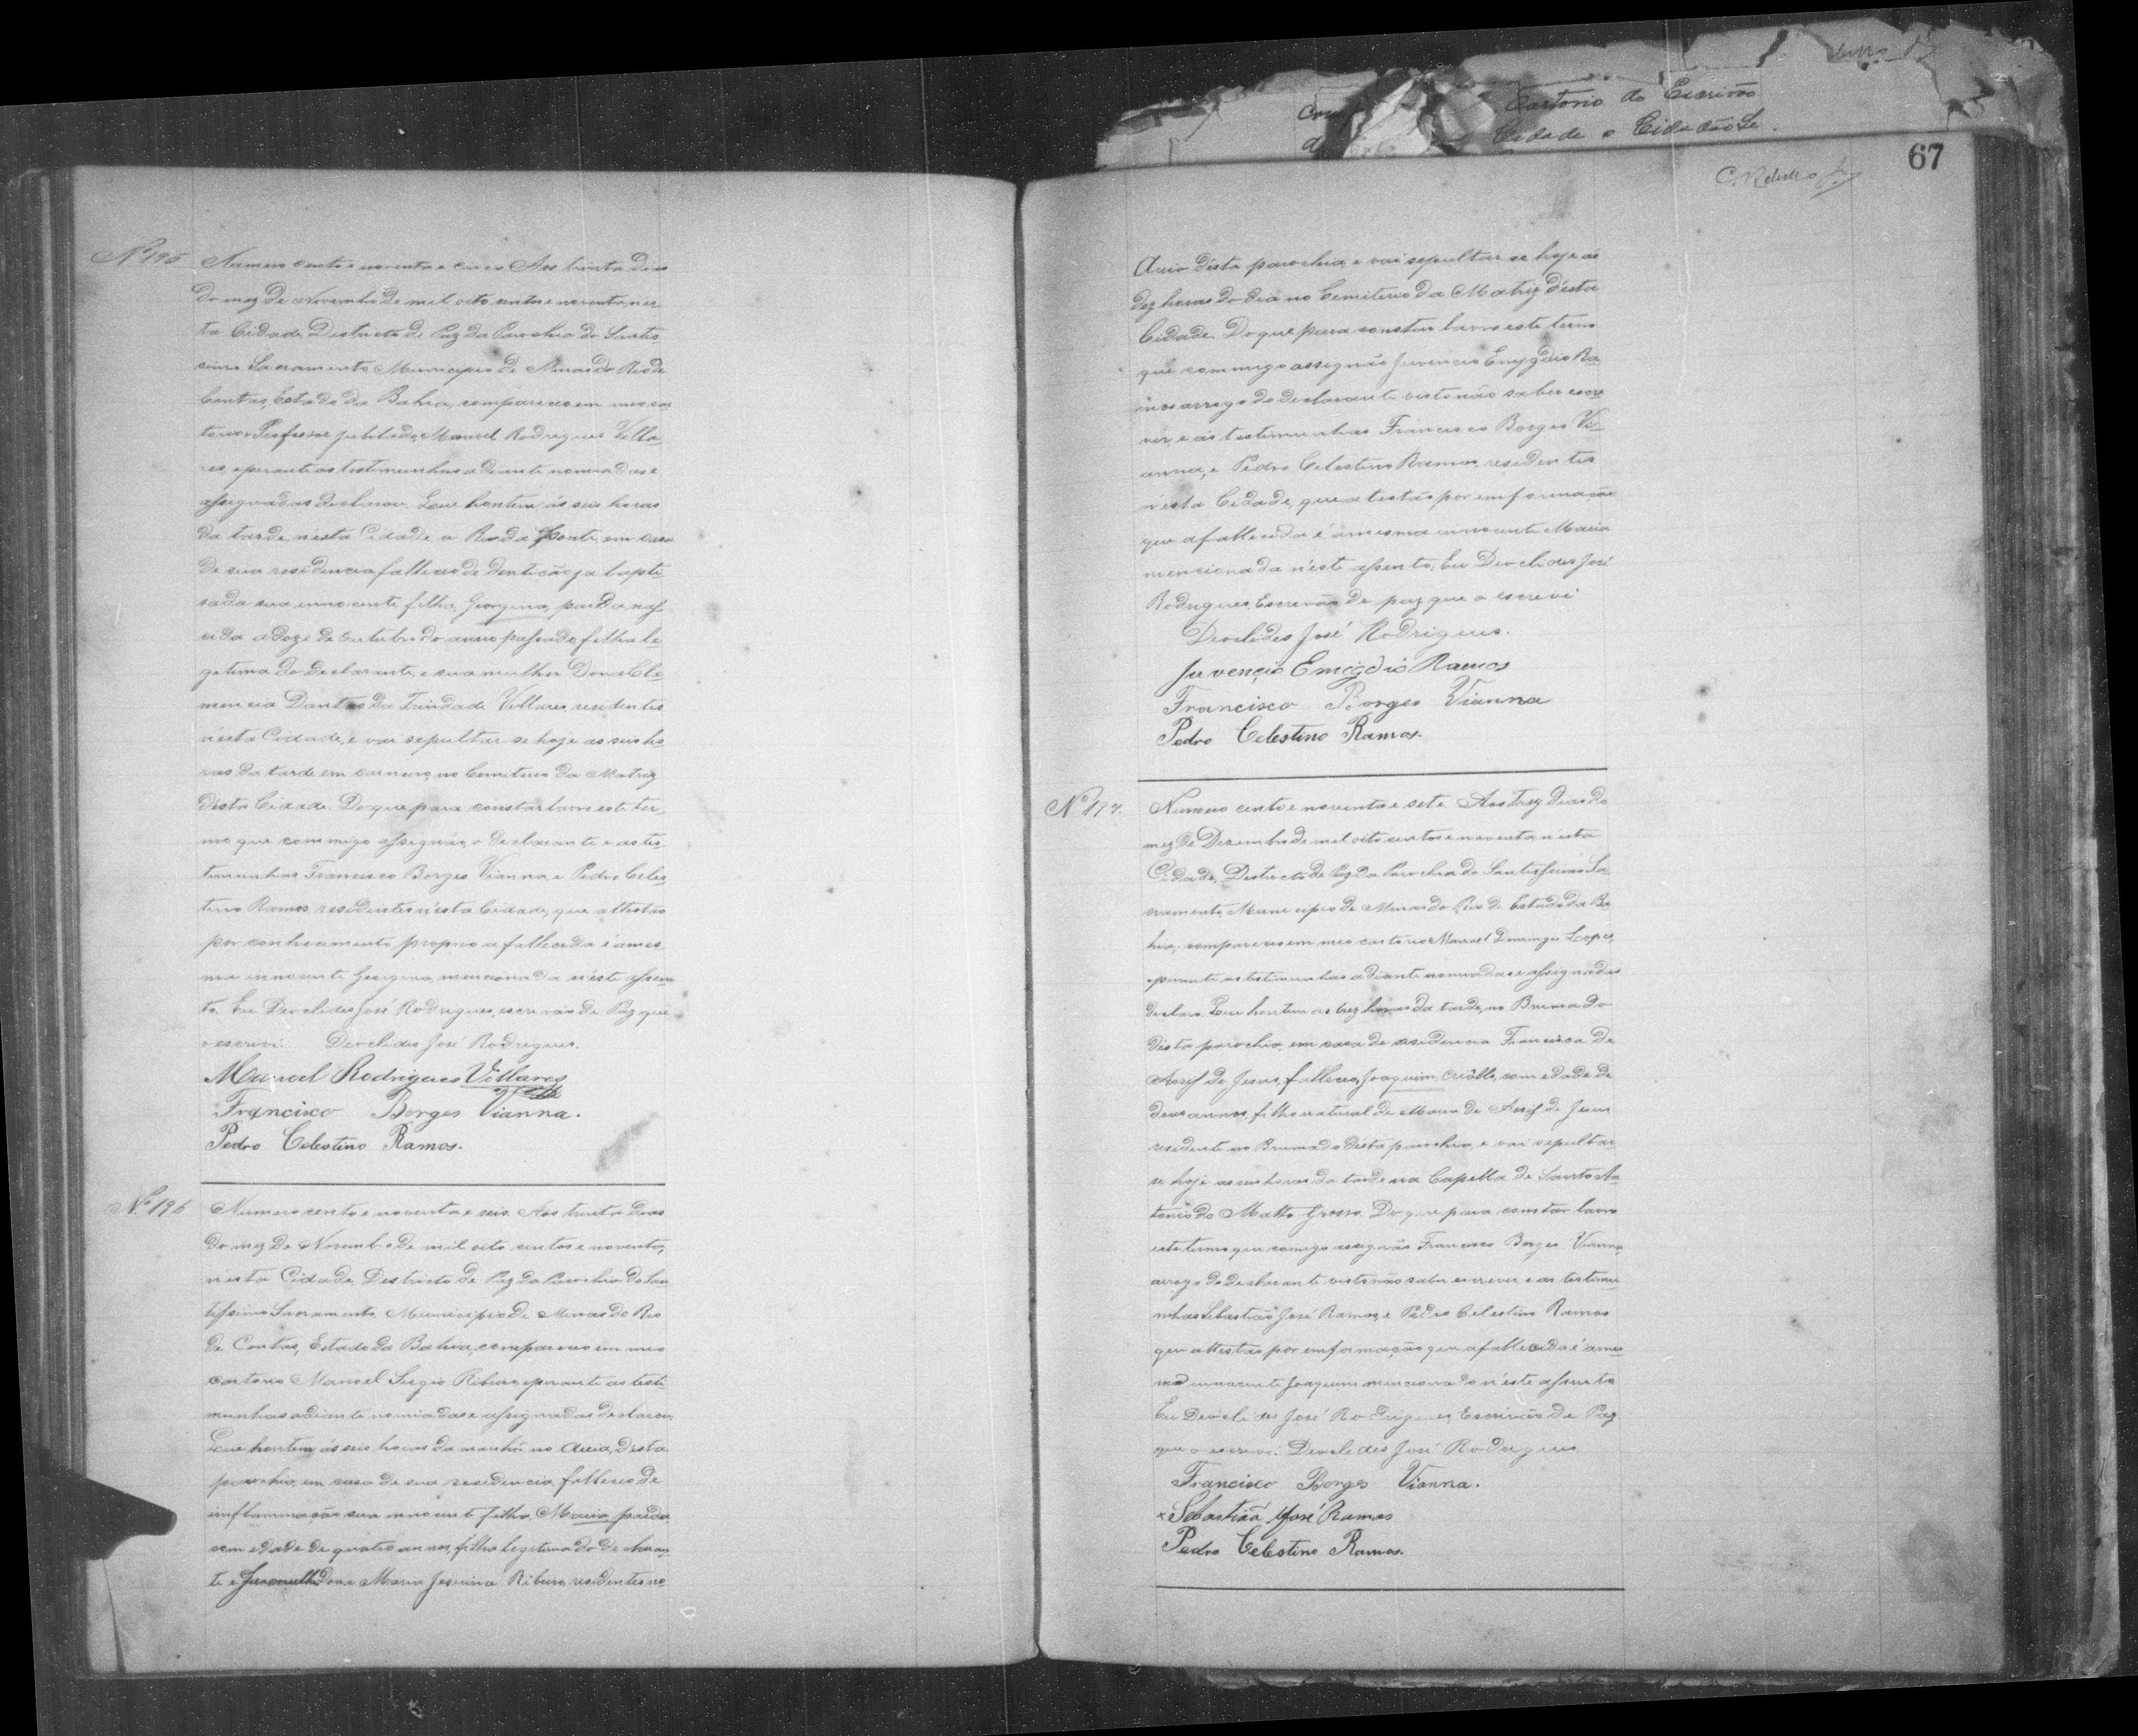 Cartorio do Escrivão
Cidade o Cidadão Se
67
Nº 195
Numero cento e noventa e cinco Aos trinta dias
do mez de Novembro de mil oito centos e noventa, nes
ta Cidade, Districto de Paz da Parochia do Santis
simo Sacramento, Municipio de Minas do Rio de
Contas, Estado da Bahia, compareceo em meo car
torio o Professor jubilado, Manoel Rodrigues Villa
res, e perante as testemunhas adiante nomeadas e
assignadas declarou: Que hontem, ás seis horas
da tarde, n'esta Cidade, a Rua da Ponte, em casa
de sua residencia falleceo de dentição, ja bapti
sada sua innocente filha, Georgina, parda, nas
cida a doze de Outubro do anno passado, filha le
getima do declarante, e sua mulher Dona Cle
mencia Dantas da Trindade Villares, residentes
n'esta Cidade, e vai sepultar-se hoje as seis ho
ras da tarde em carneiro, no Cemiterio da Matriz
d'esta Cidade. Do que para constar lavro este ter
mo que commigo assignão, o declarante e as tes
temunhas Francisco Borges Vianna, e Pedro Celes
tino Ramos, residentes n'esta Cidade, que attestão
por conhecimento proprio a fallecida é a mes
ma innocente Georgina, mencionada n'este assen
to. Eu Deoclides José Rodrigues, escrivão de Paz que
o escrevi. Deoclides José Rodrigues.
Manoel Rodrigues Villares
Francisco Borges Vianna.
Pedro Celestino Ramos.
Nº 196
Numero cento e noventa e seis. Aos trinta dias
do mez de Novembro de mil oito centos e noventa,
n'esta Cidade, Districto de Paz da Parochia do San
tissimo Sacramento, Municipio de Minas do Rio
de Contas, Estado da Bahia, compareceo em meo
cartorio Manoel Sergio Ribeiro, e perante as teste
munhas adiante nomiadas e assignadas declarou:
Que hontem, ás seis horas da manhã, no Areia, d'esta
parochia, em casa de sua residencia, falleceo de
imflammação sua innocente filha, Maria, parda,
com edade de quatro annos, filha legitima do declaran
te e Sua mulher Dona Maria Jesuina Ribeiro, residentes no
Areia d'esta parochia, e vai sepultar-se hoje ás
dez horas do dia no Cemiterio da Matriz d'esta
Cidade. Do que para constar lavro este termo
que commigo assignão Juvencio Emygdio Ra
mos a rogo do declarante visto não saber escre
ver, e as testimunhas Francisco Borges Vi
anna, e Pedro Celestino Ramos, residentes
n'esta Cidade, que attestão por emformação
que a fallecida é a mesma innocente Maria
mencionada n'este assento. Eu Deoclides José
Rodrigues, Escrivão de paz que o escrevi
Deoclides José Rodrigues.
Juvencio Emigdio Ramos
Francisco Borges Vianna
Pedro Celestino Ramos.
Nº 197.
Numero cento e noventa e sete. Aos trez dias do
mez de Dezembro de mil oito centos e noventa, n'esta
Cidade, Districto de Paz da Parochia do Santissimo Sa
cramento, Municipio de Minas do Rio de Estado da Ba
hia, compareceo em meo cartorio Manoel Domingos Lopes,
e perante as testimunhas adiante nomeadas e assignadas
declarou: Que hontem as trez horas da tarde, no Brumado
d'esta parochia, em casa de residencia Francisca de
Assiz de Jesus, falleceo, Joaquim, criôlo, com edade de
dous annos, filho natural de Maria de Assiz de Jesus
residente no Brumado d'esta parochia, e vai sepultar
se hoje as seis horas da tarde na Capella de Santo An
tonio do Matto Grosso. Do que para constar lavro
este termo que comigo assignão Francisco Borges Vianna
a rogo do declarante visto não saber escrever e as testimu
nhas Sebastião José Ramos, e Pedro Celestino Ramos
que attestão por emformação que a fallecida é a mes
ma innocente Joaquim mencionado n'este assento
Eu Deoclides José Rodrigues, Escrivão de Paz
que o escrevi. Deoclides José Rodrigues
Francisco Borges Vianna.
Sebastião José Ramos
Pedro Celestino Ramos.